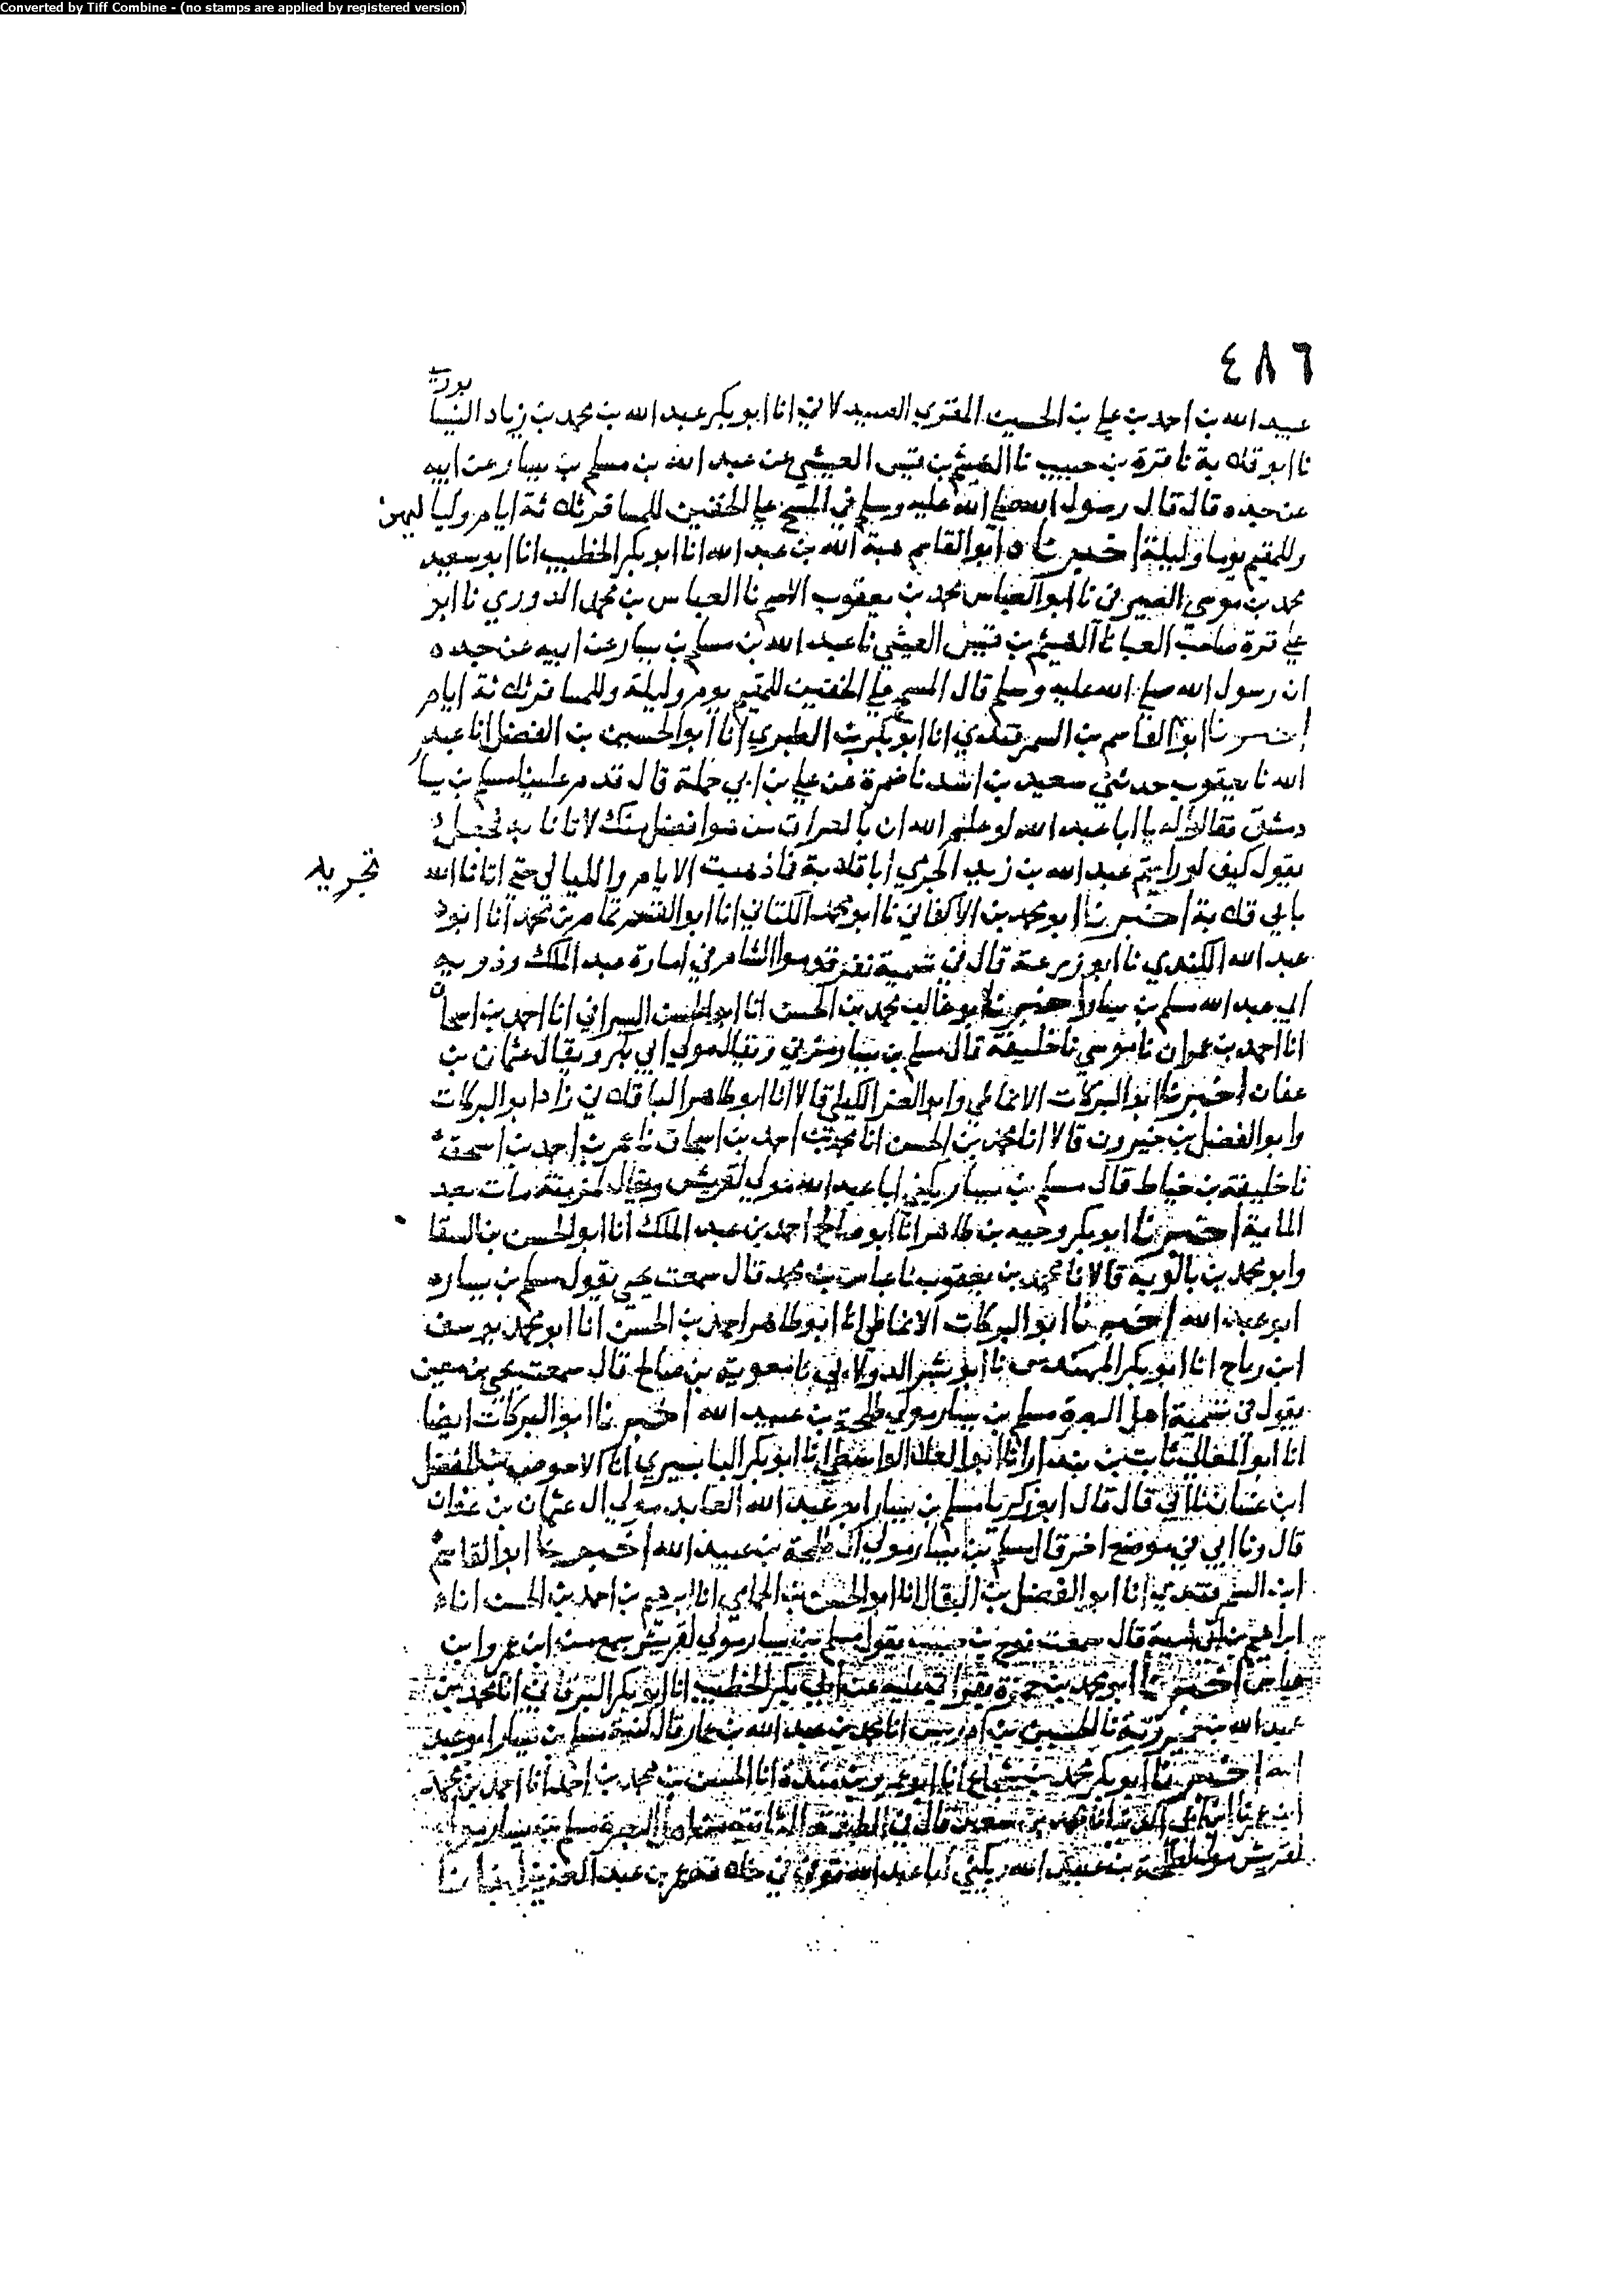 Converted by Tiff Combine - (no stamps are applied by registered version)
٤٨٦
عبيد الله بن احمد بن علي بن الحسين المقري الصيدلاني انا ابو بكر عبد الله بن محمد بن زياد النيسا بوري
نا ابو قلابة نا قرة بن حبيب نا الهيثم بن قيس العيشي عن عبد الله بن مسلم بن يسار عن ابيه
عن جده قال قال رسول الله صلى الله عليه وسلم في المسح علي الخفين للمسافر ثلاثة ايام ولياليهن
وللمقيم يوما وليلة اخبرناه ابو القاسم هبة الله بن عبد الله انا ابو بكر الخطيب انا ابو سعيد
محمد بن موسى الصيرفي نا ابو العباس محمد بن يعقوب الاصم نا العباس بن محمد الدوري نا ابو
علي قرة صاحب العبا نا الهيثم بن قيس العيشي نا عبد الله بن مسلم بن يسار عن ابيه عن جده
ان رسول الله صلى الله عليه وسلم قال المسح علي الخفين للمقيم يوم وليلة وللمسافر ثلاثة ايام
اخبرنا ابو القاسم بن السمرقندي انا ابو بكر بن الطبري انا ابو الحسين بن الفضل انا عبد
الله نا يعقوب حدثني سعيد بن اسد نا ضمرة عن علي بن ابي حملة قال قدم علينا مسلم بن يسار
دمشق فقالوا له يا ابا عبد الله لو علم الله ان بالعراق من هو افضل منك لاتانا به فجعل
يقول كيف لو رايتم عبد الله بن زيد الجرمي ابا قلابة فما ذهبت الايام والليالي حتى اتانا الله
تجريد
بابي قلابة اخبرنا ابو محمد بن الاكفاني نا ابو محمد الكتاني انا ابو القاسم تمام بن محمد انا ابو
عبد الله الكندي نا ابو زرعة قال في تسمية نفر قدموا الشام في امارة عبد الملك وذويه
ابو عبد الله مسلم بن يسار اخبرنا ابو غالب محمد بن الحسن انا ابو الحسن السيرافي انا احمد بن اسحاق
انا احمد بن عمران نا موسي نا خليفة قال مسلم بن يسار ويقال مولى ابي بكر ويقال عثمان بن
عفان اخبرنا ابو البركات الانماطي وابو العز الكيلي قالا انا ابو طاهر الباقلاني زاد ابو البركات
وابو الفضل بن خيرون قالا انا محمد بن الحسن انا محمد بن احمد بن اسحاق نا عمر بن احمد بن اسحق
نا خليفة بن خياط قال مسلم بن يسار يكنى ابا عبد الله مولى لقريش ويقال لمزينة مات بعد
الماية اخبرنا ابو بكر وجيه بن طاهر انا ابو صالح احمد بن عبد الملك انا ابو الحسن بن السقا
وابو محمد بن بالوية قالا نا محمد بن يعقوب نا عباس بن محمد قال سمعت يحيى يقول مسلم بن يسار
ابو عبد الله اخبرنا ابو البركات الانماطي انا ابو طاهر احمد بن الحسن انا ابو محمد يوسف
ابن رباح انا ابو بكر المهندس نا ابو بشر الدولابي نا معوية بن صالح قال سمعت يحيى بن معين
يقول في تسمية اهل البصرة مسلم بن يسار مولى طلحة بن عبيد الله اخبرنا ابو البركات ايضا
انا ابو المعالي ثابت بن بندار انا ابو العلا الواسطي انا ابو بكر البابسيري انا الاحوص بن المفضل
ابن غسان نا ابي قال قال ابو زكريا مسلم بن يسار ابو عبد الله العابد مولى ال عثمان بن عفان
قال ونا ابي في موضع اخر قال مسلم بن يسار مولى ال طلحة بن عبيد الله اخبرنا ابو القاسم
ابن السمرقندي انا ابو الفضل بن البقال انا ابو الحسن بن الحمامي انا ابرهيم بن احمد بن الحسن انا
ابراهيم بن ابي امية قال سمعت نوح بن حبيب يقول مسلم بن يسار مولى لقريش سمع من ابن عمر وابن
عباس اخبرنا ابو محمد بن حمزة بقراتي عليه عن ابي بكر الخطيب انا ابو بكر البرقاني انا محمد بن
عبد الله بن خميروية نا الحسين بن ادريس انا محمد بن عبد الله بن عمار قال كنية مسلم بن يسار ابو عبد
الله اخبرنا ابو بكر محمد بن شجاع انا ابو عمرو بن مندة انا الحسن بن محمد بن احمد انا احمد بن محمد
ابن عمر نا ابن ابي الدنيا نا محمد بن سعد قال في الطبقة الثانية من اهل البصرة مسلم بن يسار مولى
لقريش مولى لطلحة بن عبيد الله ويكنى ابا عبد الله توفي في خلافة عمر بن عبد العزيز انبانا